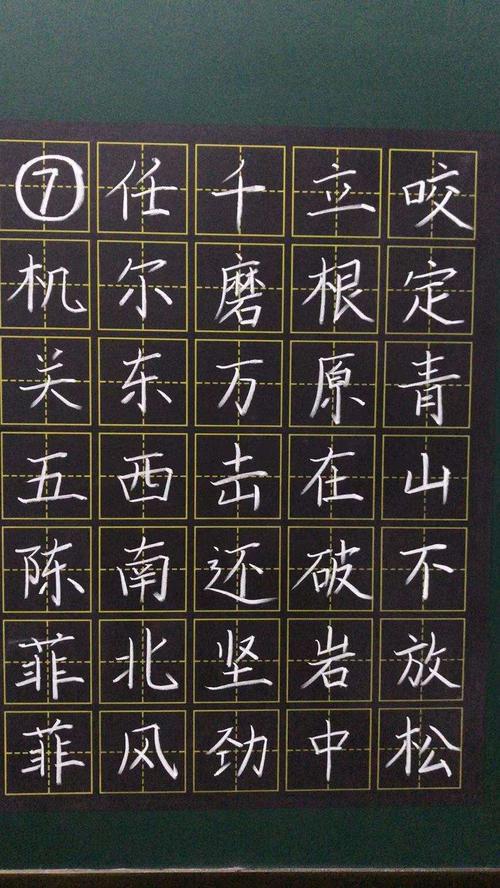 咬定青山不放松
立根原在破岩中
千磨万击还坚劲
任尔东西南北风
⑦机关五陈菲菲